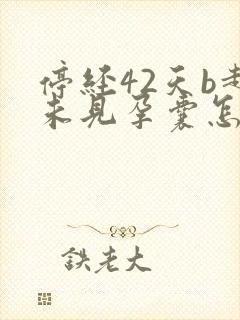 停经42天b
未见孕囊怎
鉄老大